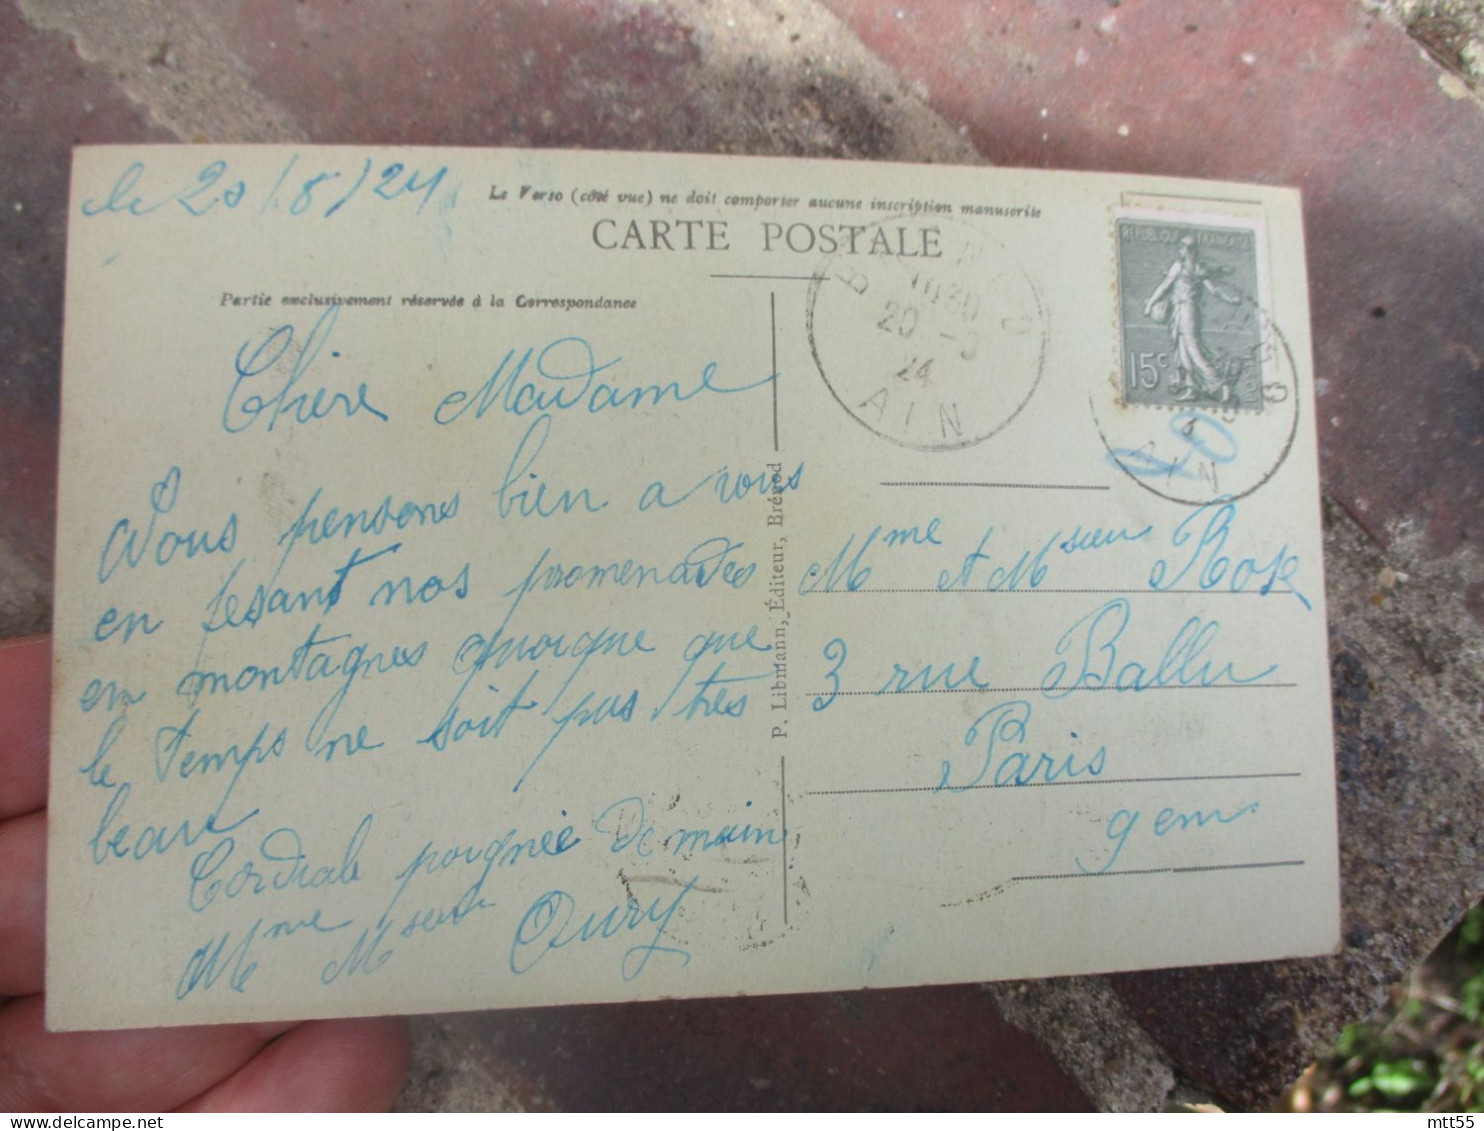 le 20/8/24
Le Verso (côté vue) ne doit comporter aucune inscription manuscrite
CARTE POSTALE
Partie exclusivement réservée à la Correspondance
Chère Madame
Nous pensons bien a vous
en fesant nos promenades
en montagnes quoique que
le temps ne soit pas très
beau
Cordiale poignée de main
Mme Msieur Oury
P. Libmann, Éditeur, Brénod
20 - 8
24
AIN
REPUBLIQUE FRANÇAISE
15c
AIN
Mme et Msieur Rose
3 rue Ballu
Paris
9em
mtt55